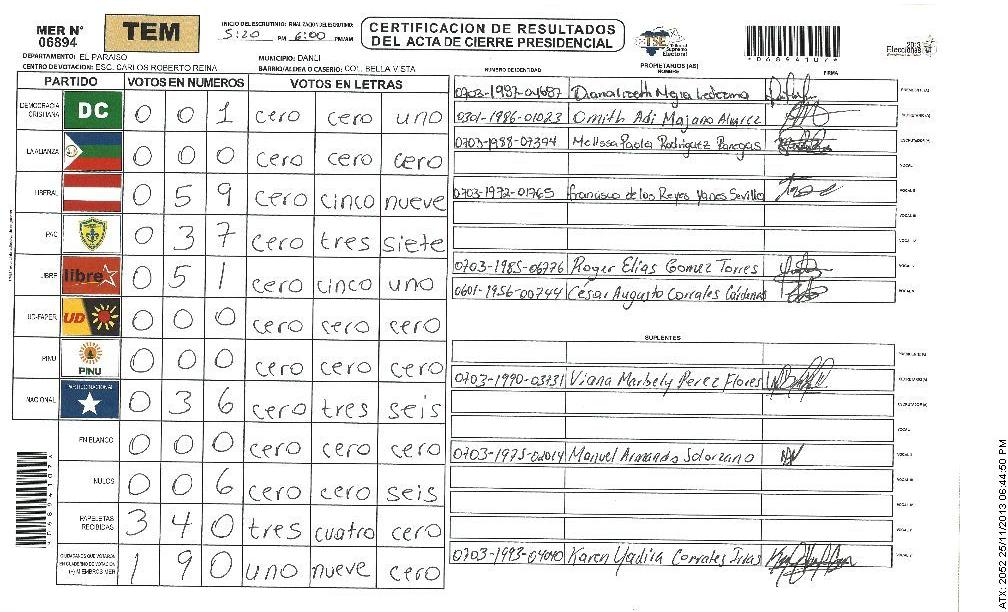 MER N° 06894
TEM
INICIO DEL ESCRUTINIO: FINALIZACION DEL ESCRUTINIO:
5:20 PM 6:00 PM/AM
CERTIFICACION DE RESULTADOS
DEL ACTA DE CIERRE PRESIDENCIAL
TSE Tribunal Supremo Electoral
2013 Elecciones
*068941U7*
DEPARTAMENTO: EL PARAISO
MUNICIPIO: DANLI
CENTRO DE VOTACION: ESC. CARLOS ROBERTO REINA
BARRIO/ALDEA O CASERIO: COL. BELLA VISTA
PARTIDO VOTOS EN NUMEROS VOTOS EN LETRAS
DEMOCRACIA CRISTIANA DC 0 0 1 cero cero uno
LA ALIANZA 0 0 0 cero cero cero
LIBERAL 0 5 9 cero cinco nueve
PAC 0 3 7 cero tres siete
LIBRE libre 0 5 1 cero cinco uno
UD-FAPER UD 0 0 0 cero cero cero
PINU PINU 0 0 0 cero cero cero
NACIONAL PARTIDO NACIONAL 0 3 6 cero tres seis
EN BLANCO 0 0 0 cero cero cero
NULOS 0 0 6 cero cero seis
PAPELETAS RECIBIDAS 3 4 0 tres cuatro cero
CIUDADANOS QUE VOTARON EN CUADERNO DE VOTACION (+) MIEMBROS MER 1 9 0 uno nueve cero
NUMERO DE IDENTIDAD PROPIETARIOS (AS) NOMBRE FIRMA
0703-1987-04687 Diana Lizeth Mejia Ledezma
0801-1986-01023 Omith Adi Majano Alvarez
0703-1988-07394 Melissa Paola Rodriguez Banegas
0703-1972-01765 Francisco de los Reyes Yanes Sevilla
0703-1985-06776 Roger Elias Gomez Torres
0601-1956-00744 César Augusto Corrales Cárdenas
SUPLENTES
0703-1990-03731 Viana Marbely Perez Flores
0703-1975-02014 Manuel Armando Solorzano
0703-1993-04040 Karen Yadira Corrales Irias
ATX: 2052 25/11/2013 06:44:50 PM